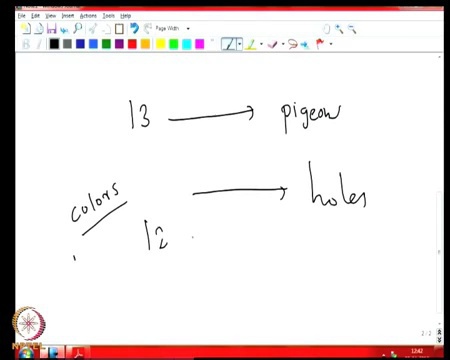 File Edit View Insert Actions Tools Help
Page Width
13 → pigeon
colors → holes
12
2/2
12:42